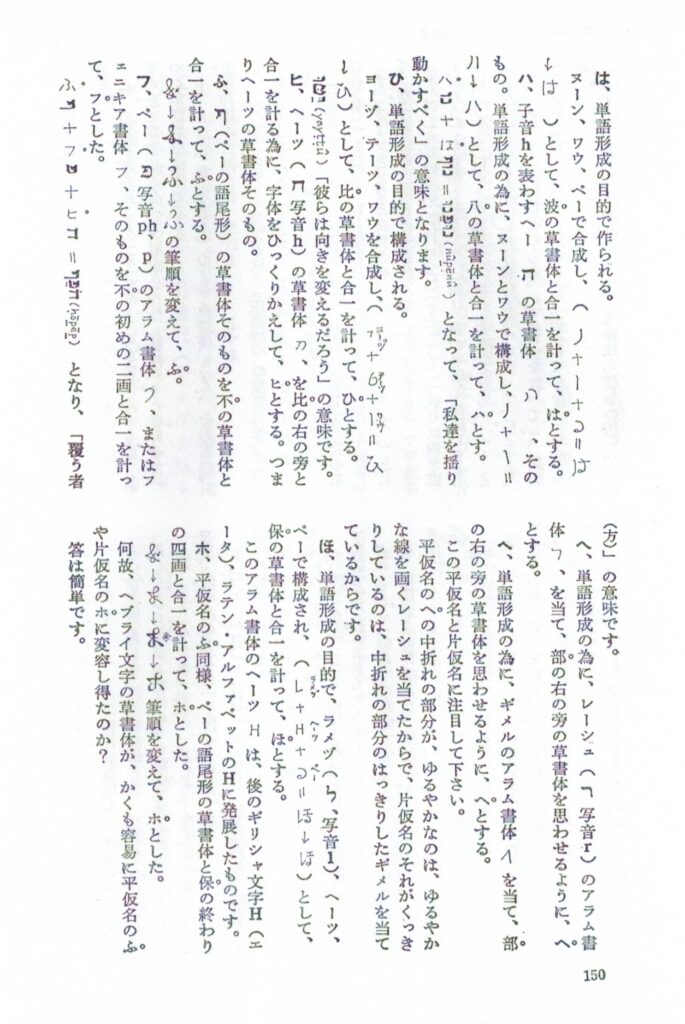 は、単語形成の目的で作られる。
ヌーン、ワウ、ペーで合成し、（
↓は ）として、波の草書体と合一を計って、はとする。
ハ、子音hを表わすヘー ה の草書体 、その
もの。単語形成の為に、ヌーンとワウで構成し、
八）として、八の草書体と合一を計って、ハとす。
となって、「私達を揺り
動かすべく」の意味となります。
ひ、単語形成の目的で構成される。
ヨーヅ、テーツ、ワウを合成し、（
↓ひ）として、比の草書体と合一を計って、ひとする。
「彼らは向きを変えるだろう」の意味です。
ヒ、ヘーツ（ 写音h）の草書体 、を比の右の旁と
合一を計る為に、字体をひっくりかえして、ヒとする。つま
りヘーツの草書体そのもの。
ふ、（ペーの語尾形）の草書体そのものを不の草書体と
合一を計って、ふとする。
の筆順を変えて、ふ。
フ、ペー（ 写音ph、p）のアラム書体 、またはフ
ェニキア書体 フ、そのものを不の初めの二画と合一を計っ
て、フとした。
となり、「覆う者
（方）」の意味です。
へ、単語形成の為に、レーシュ（ 写音r）のアラム書
体 、を当て、部の右の旁の草書体を思わせるように、へ
とする。
ヘ、単語形成の為に、ギメルのアラム書体 を当て、部
の右の旁の草書体を思わせるように、ヘとする。
この平仮名と片仮名に注目して下さい。
平仮名のへの中折れの部分が、ゆるやかなのは、ゆるやか
な線を画くレーシュを当てたからで、片仮名のそれがくっき
りしているのは、中折れの部分のはっきりしたギメルを当て
ているからです。
ほ、単語形成の目的で、ラメヅ（ 、写音l）、ヘーツ、
ペーで構成され、（ ほ↓ほ）として、
保の草書体と合一を計って、ほとする。
このアラム書体のヘーツ H は、後のギリシャ文字H（エ
ータ）、ラテン・アルファベットのHに発展したものです。
ホ、平仮名のふ同様、ペーの語尾形の草書体と保の終わり
の四画と合一を計って、ホとした。
筆順を変えて、ホとした。
何故、ヘブライ文字の草書体が、かくも容易に平仮名のふ
や片仮名のホに変容し得たのか？
答は簡単です。
150